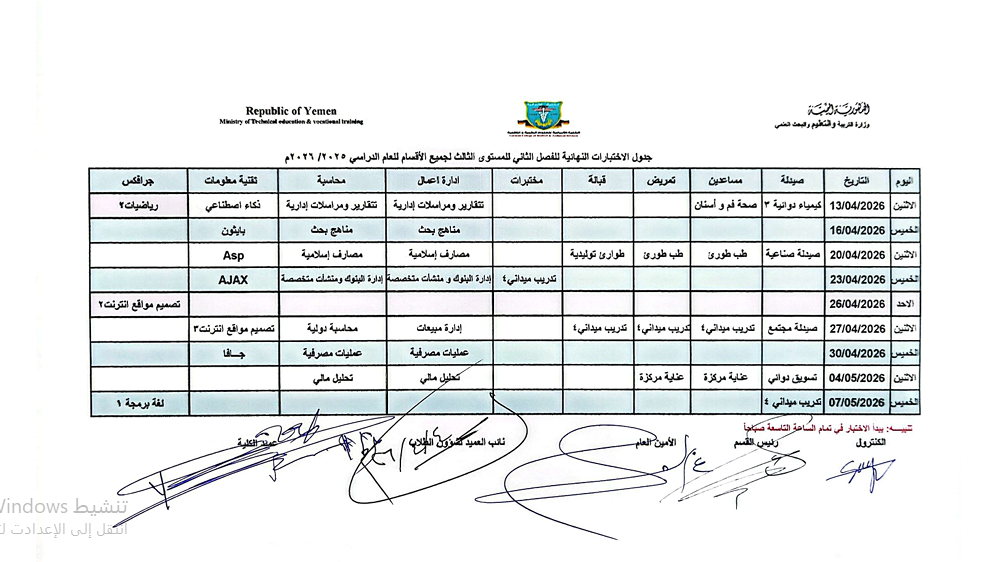 الجمهورية اليمنية
وزارة التربية والتعليم والبحث العلمي
Republic of Yemen
Ministry of Technical education & vocational training
جدول الاختبارات النهائية للفصل الثاني للمستوى الثالث لجميع الأقسام للعام الدراسي ٢٠٢٥/ ٢٠٢٦م
اليوم التاريخ صيدلة مساعدين تمريض قبالة مختبرات ادارة اعمال محاسبة تقنية معلومات جرافكس
الاثنين 13/04/2026 كيمياء دوائية ٣ صحة فم و أسنان تتقارير ومراسلات إدارية تتقارير ومراسلات إدارية ذكاء اصطناعي رياضيات٢
الخميس 16/04/2026 مناهج بحث مناهج بحث بايثون
الاثنين 20/04/2026 صيدلة صناعية طب طورئ طب طورئ طوارئ توليدية مصارف إسلامية مصارف إسلامية Asp
الخميس 23/04/2026 تدريب ميداني٤ إدارة البنوك و منشأت متخصصة إدارة البنوك ومنشأت متخصصة AJAX
الاحد 26/04/2026 تصميم مواقع انترنت٢
الاثنين 27/04/2026 صيدلة مجتمع تدريب ميداني٤ تدريب ميداني٤ تدريب ميداني٤ إدارة مبيعات محاسبة دولية تصميم مواقع انترنت٣
الخميس 30/04/2026 عمليات مصرفية عمليات مصرفية جـافا
الاثنين 04/05/2026 تسويق دوائي عناية مركزة عناية مركزة تحليل مالي تحليل مالي
الخميس 07/05/2026 تدريب ميداني ٤ لغة برمجة ١
تنبيـــه: يبدأ الاختبار في تمام الساعة التاسعة صباحاً
الكنترول رئيس القسم الأمين العام نائب العميد لشؤون الطلاب عميد الكلية
تنشيط Windows
انتقل إلى الإعدادت